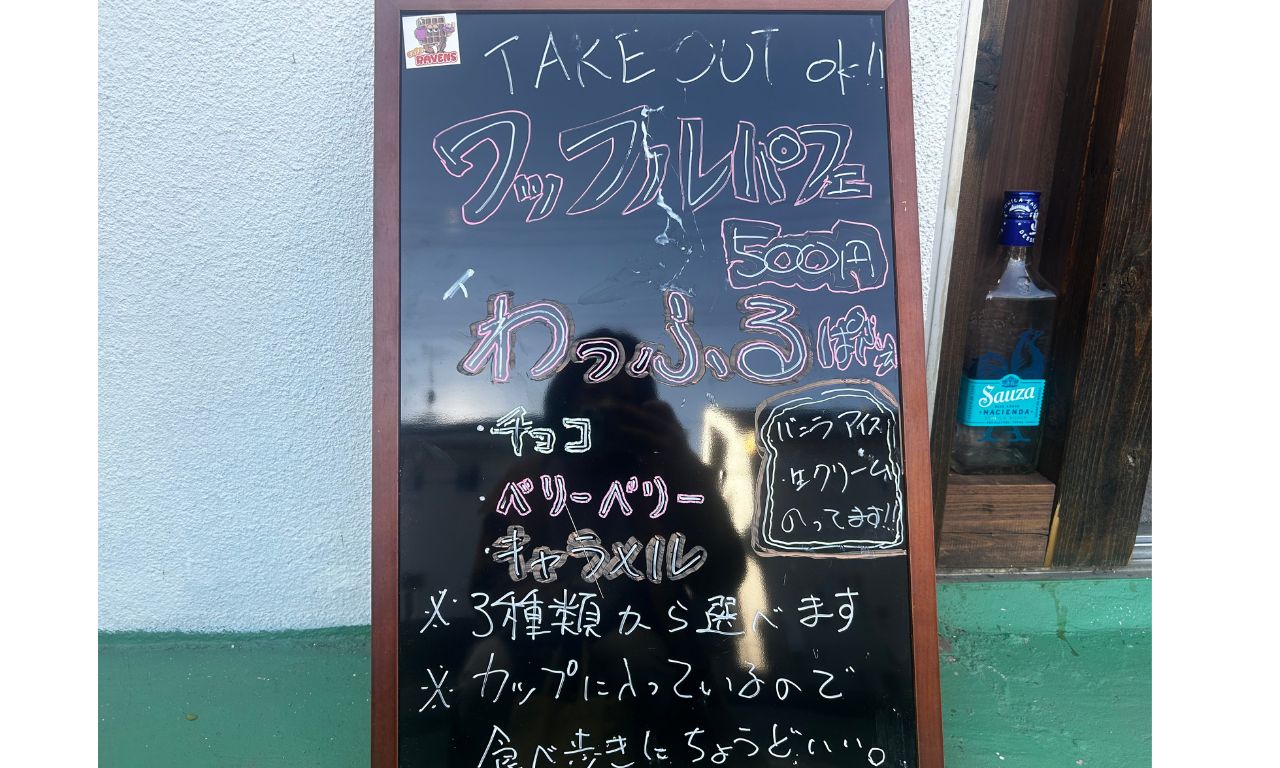 RAVENS
TAKE OUT ok!!
ワッフルパフェ
500円
わっふるぱふぇ
・チョコ
・ベリーベリー
・キャラメル
バニラアイス
・生クリーム
のってます!!
※3種類から選べます
※カップに入っているので
食べ歩きにちょうどいい。
Sauza
HACIENDA